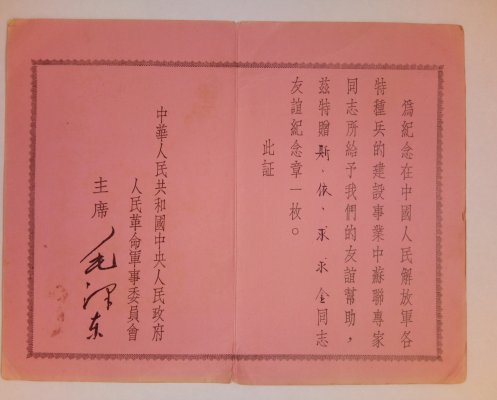 為紀念在中國人民解放軍各
特種兵的建設事業中蘇聯專家
同志所給予我們的友誼幫助，
茲特贈斯·依·求求金同志
友誼紀念章一枚。
此証
中華人民共和國中央人民政府
人民革命軍事委員會
主席 毛澤东